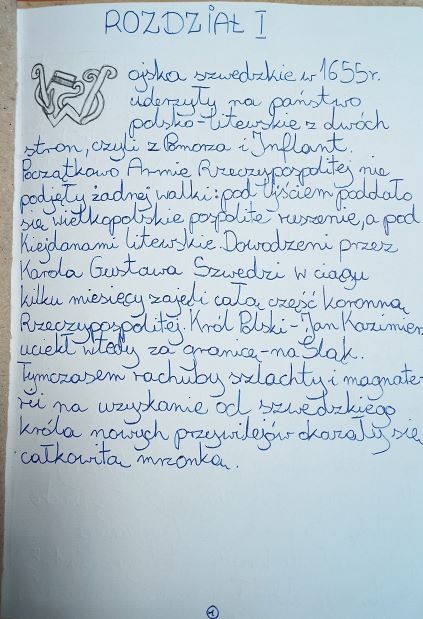 ROZDZIAŁ I
Wojska szwedzkie w 1655r.
uderzyły na państwo
polsko-litewskie z dwóch
stron, czyli z Pomorza i Inflant.
Początkowo Armie Rzeczypospolitej nie
podjęły żadnej walki: pod Ujściem poddało
się wielkopolskie pospolite ruszenie, a pod
Kiejdanami litewskie. Dowodzeni przez
Karola Gustawa Szwedzi w ciągu
kilku miesięcy zajęli całą część koronną
Rzeczypospolitej. Król Polski-Jan Kazimierz
uciekł wtedy za granicę-na Śląk.
Tymczasem rachuby szlachty i magnate-
rii na uzyskanie od szwedzkiego
króla nowych przywilejów okazały się
całkowitą mrzonką.
1